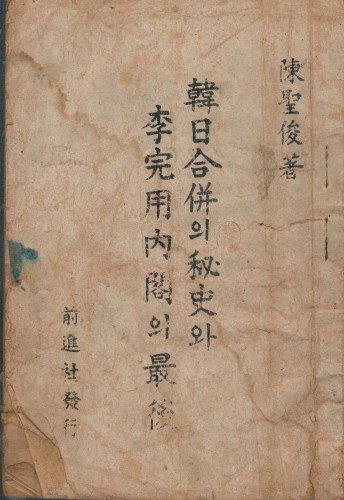 陳聖俊著
韓日合併의 秘史와
李完用內閣의 最後
前進社發行